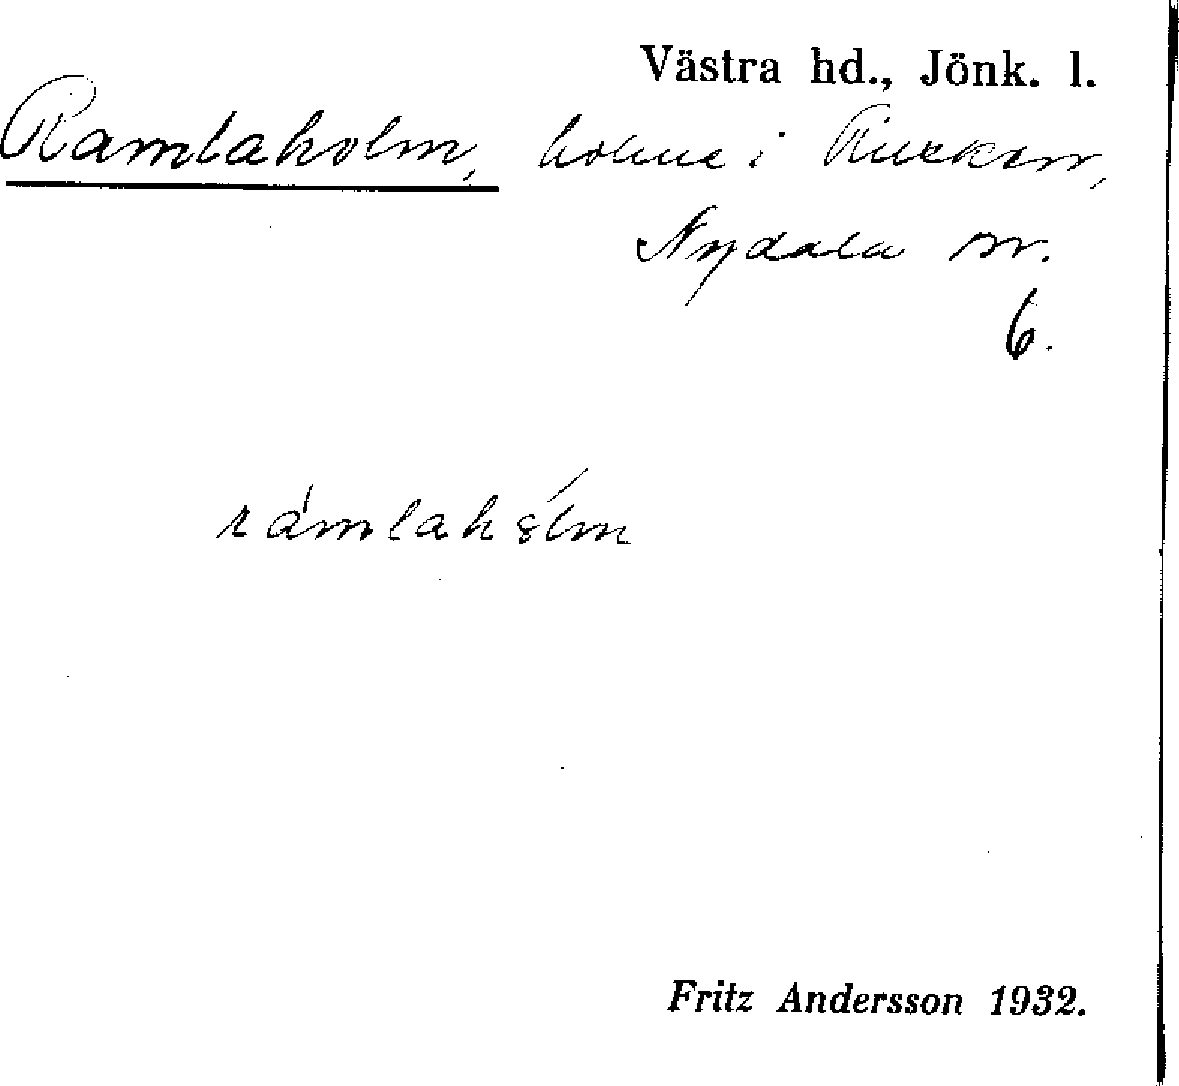 Västra hd., Jönk. l.
Ramlaholm, holme i Rucken,
Nydala sn.
6.
ramlahólm
Fritz Andersson 1932.